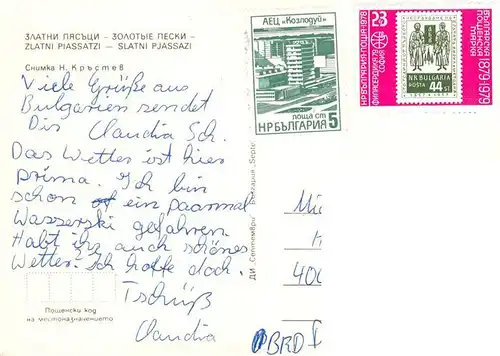 ЗЛАТНИ ПЯСЪЦИ – ЗОЛОТЫЕ ПЕСКИ –
ZLATNI PIASSATZI – SLATNI PJASSAZI
Снимка Н. Кръстев
Viele Grüße aus
Bulgarien sendet
Dir Claudia Sch.
Das Wetter ist hier
prima. Ich bin
schon ein paarmal
Wasserski gefahren.
Habt ihr auch schönes
Wetter. Ich hoffe doch.
Tschüß
Claudia
Пощенски код
на местоназначението
АЕЦ „Козлодуй"
поща ст.
НР БЪЛГАРИЯ 5
23
НР БЪЛГАРИЯ·ПОЩА·1978
ФИЛАСЕРДИКА '79
СОФИЯ
NR BULGARIA
POŠTA 44 ST
1957 1958
БЪЛГАРСКА
ПОЩЕНСКА
МАРКА
1879-1979
ДИ „Септември"
България
Septe
400
BRD